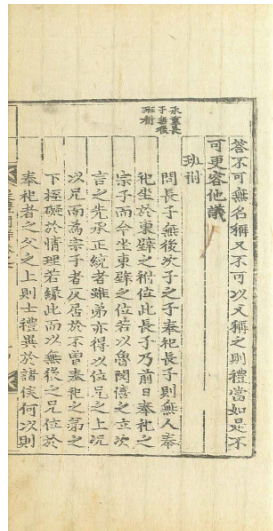 答不可無名稱又不可以父稱之則禮當如是不
可更容他議
班祔
承重長
子無後
班祔
問長子無後次子之子奉祀長子則無人奉
祀坐於東壁之祔位此長子乃前日奉祀之
宗子而今坐東壁之位若以魯閔僖之立次
言之先承正統者雖弟亦得以位兄之上況
以兄而為宗子者反居於不曾奉祀之弟之
下揑礙於情理若緣此而以無後之兄位於
奉祀者之父之上則士禮異於諸侯何以則